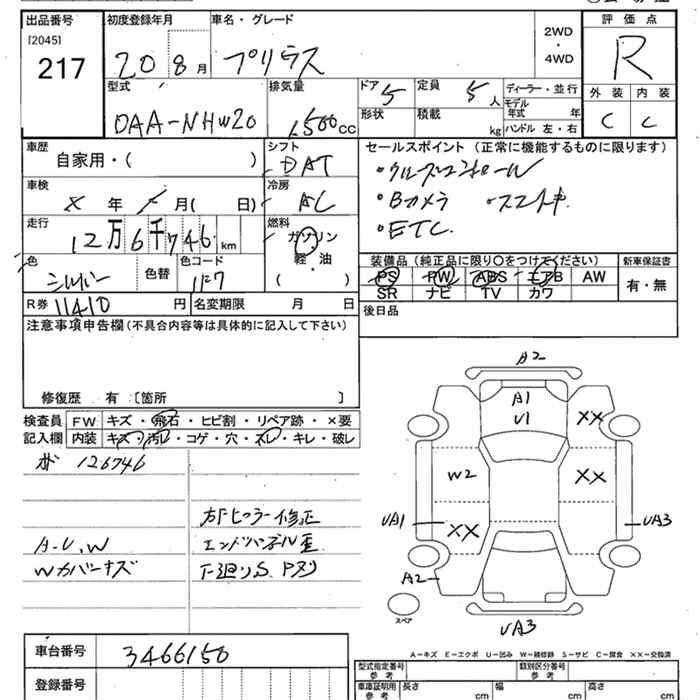 出品番号 初度登録年月 車名・グレード 評価点
[2045]
217
20 8月 プリウス 2WD・4WD R
外装 内装
C C
型式 排気量 ドア 定員 ディーラー・並行
DAA-NHW20 1500cc 5 5人 モデル年式 年
形状 積載 kg ハンドル 左・右
車歴 シフト セールスポイント (正常に機能するものに限ります)
自家用・( ) DAT
・クルーズコントロール
車検 冷房 ・Bカメラ ・スマートキー
X 年 月( 日) AC ・ETC
走行 燃料
12万6千746km ガソリン
軽・油
( )
装備品 (純正品に限り○をつけてください) 新車保証書
色 色替 色コード PS PW ABS エアB AW 有・無
シルバー 1F7 SR ナビ TV カワ
R券 11410 円 名変期限 月 日 後日品
注意事項申告欄 (不具合内容等は具体的に記入して下さい)
修復歴 有 〔箇所 〕
検査員 FW キズ・飛石・ヒビ割・リペア跡・×要
記入欄 内装 キズ・汚レ・コゲ・穴・スレ・キレ・破レ
126746
右Fピラー修正
A.U.W エンドパネル歪
Wカバーキズ 下廻りS.Pヌリ
A2
A1
U1
XX
W2 XX
UA1 XX UA3
A2
スペア
UA3
A-キズ E-エクボ U-凹み W-補修跡 S-サビ C-腐食 XX-交換済
車台番号 3466150
型式指定番号 参考 類別区分番号 参考
登録番号 車庫証明用 参考 長さ cm 幅 cm 高さ cm